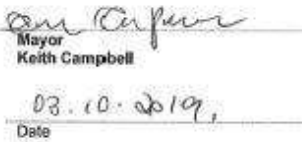 Mayor
Keith Campbell
03.10.2019,
Date